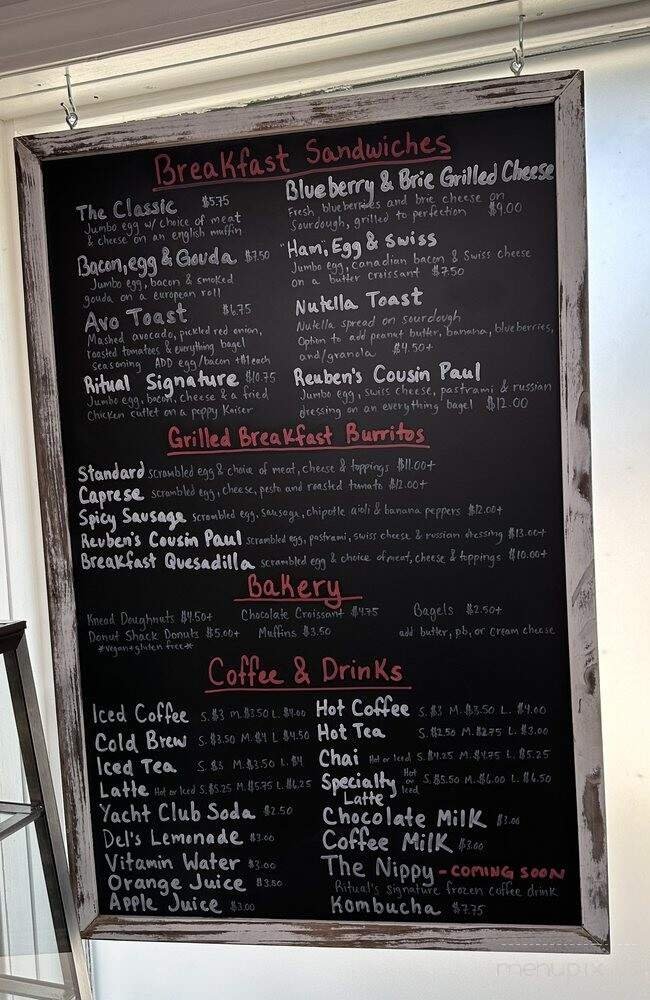 Breakfast Sandwiches
The Classic $5.75
Jumbo egg w/ choice of meat
& cheese on an english muffin
Bacon, egg & Gouda $7.50
Jumbo egg, bacon & smoked
gouda on a european roll
Avo Toast $6.75
Mashed avocado, pickled red onion,
roasted tomatoes & everything bagel
seasoning ADD egg/bacon +$1 each
Ritual Signature $10.75
Jumbo egg, bacon, cheese & a fried
Chicken cutlet on a poppy Kaiser
Blueberry & Brie Grilled Cheese
Fresh blueberries and brie cheese on
Sourdough, grilled to perfection $9.00
Ham, Egg & Swiss
Jumbo egg, canadian bacon & Swiss cheese
on a butter croissant $7.50
Nutella Toast
Nutella spread on sourdough
Option to add peanut butter, banana, blueberries,
and/granola $4.50+
Reuben's Cousin Paul
Jumbo egg, swiss cheese, pastrami & russian
dressing on an everything bagel $12.00
Grilled Breakfast Burritos
Standard scrambled egg & choice of meat, cheese & toppings $11.00+
Caprese scrambled egg, cheese, pesto and roasted tomato $12.00+
Spicy Sausage scrambled egg, sausage, chipotle aioli & banana peppers $12.00+
Reuben's Cousin Paul scrambled egg, pastrami, swiss cheese & russian dressing $13.00+
Breakfast Quesadilla scrambled egg & choice of meat, cheese & toppings $10.00+
Bakery
Knead Doughnuts $4.50+ Chocolate Croissant $4.75 Bagels $2.50+
Donut Shack Donuts $5.00+ Muffins $3.50 add butter, pb, or cream cheese
*vegan+gluten free*
Coffee & Drinks
Iced Coffee S. $3 M. $3.50 L. $4.00
Cold Brew S. $3.50 M. $4 L. $4.50
Iced Tea S. $3 M. $3.50 L. $4
Latte Hot or Iced S. $5.25 M. $5.75 L. $6.25
Yacht Club Soda $2.50
Del's Lemonade $3.00
Vitamin Water $3.00
Orange Juice $3.50
Apple Juice $3.00
Hot Coffee S. $3 M. $3.50 L. $4.00
Hot Tea S. $2.50 M. $2.75 L. $3.00
Chai Hot or Iced S. $4.25 M. $4.75 L. $5.25
Specialty Latte Hot or Iced S. $5.50 M. $6.00 L. $6.50
Chocolate Milk $3.00
Coffee Milk $3.00
The Nippy - COMING SOON
Ritual's signature frozen coffee drink
Kombucha $7.75
menupix